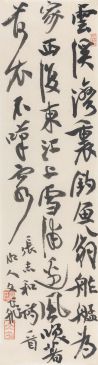 霅溪灣裏釣魚翁舴艋為
家西復東江上雪浦邊風笑著
荷衣不嘆窮
張志和詩一首